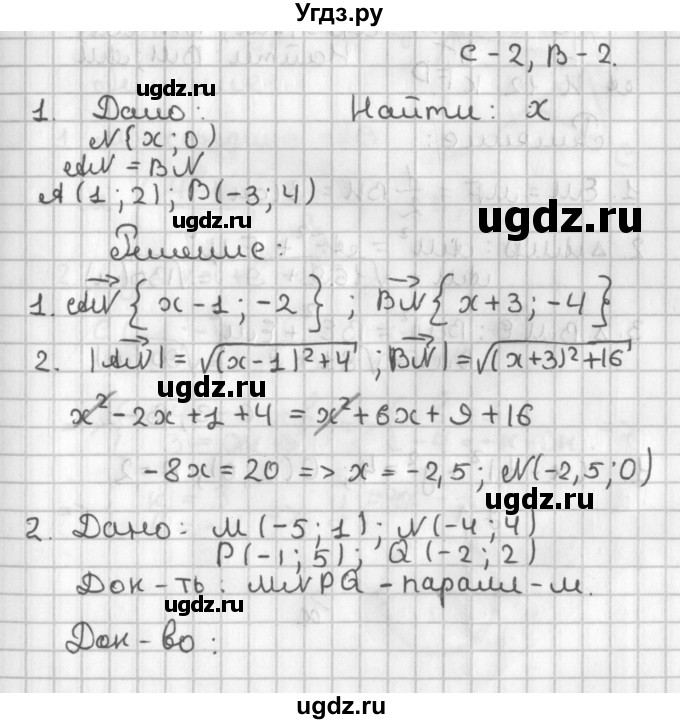 Угдз.ру
С-2, В-2.
1. Дано: Найти: x
N{x;0)
AN = BN
A(1;2); B(-3;4)
Решение:
1. AN{x-1;-2}; BN{x+3;-4}
2. |AN| = √(x-1)²+4; |BN| = √(x+3)²+16
x²-2x+1+4 = x²+6x+9+16
-8x=20 => x=-2,5; N(-2,5;0)
2. Дано: M(-5;1); N(-4;4)
P(-1;5); Q(-2;2)
Док-ть: MNPQ - паралл-м.
Док-во:
ugdz.ru
ugdz.ru
ugdz.ru
ugdz.ru
ugdz.ru
ugdz.ru
ugdz.ru
ugdz.ru
ugdz.ru